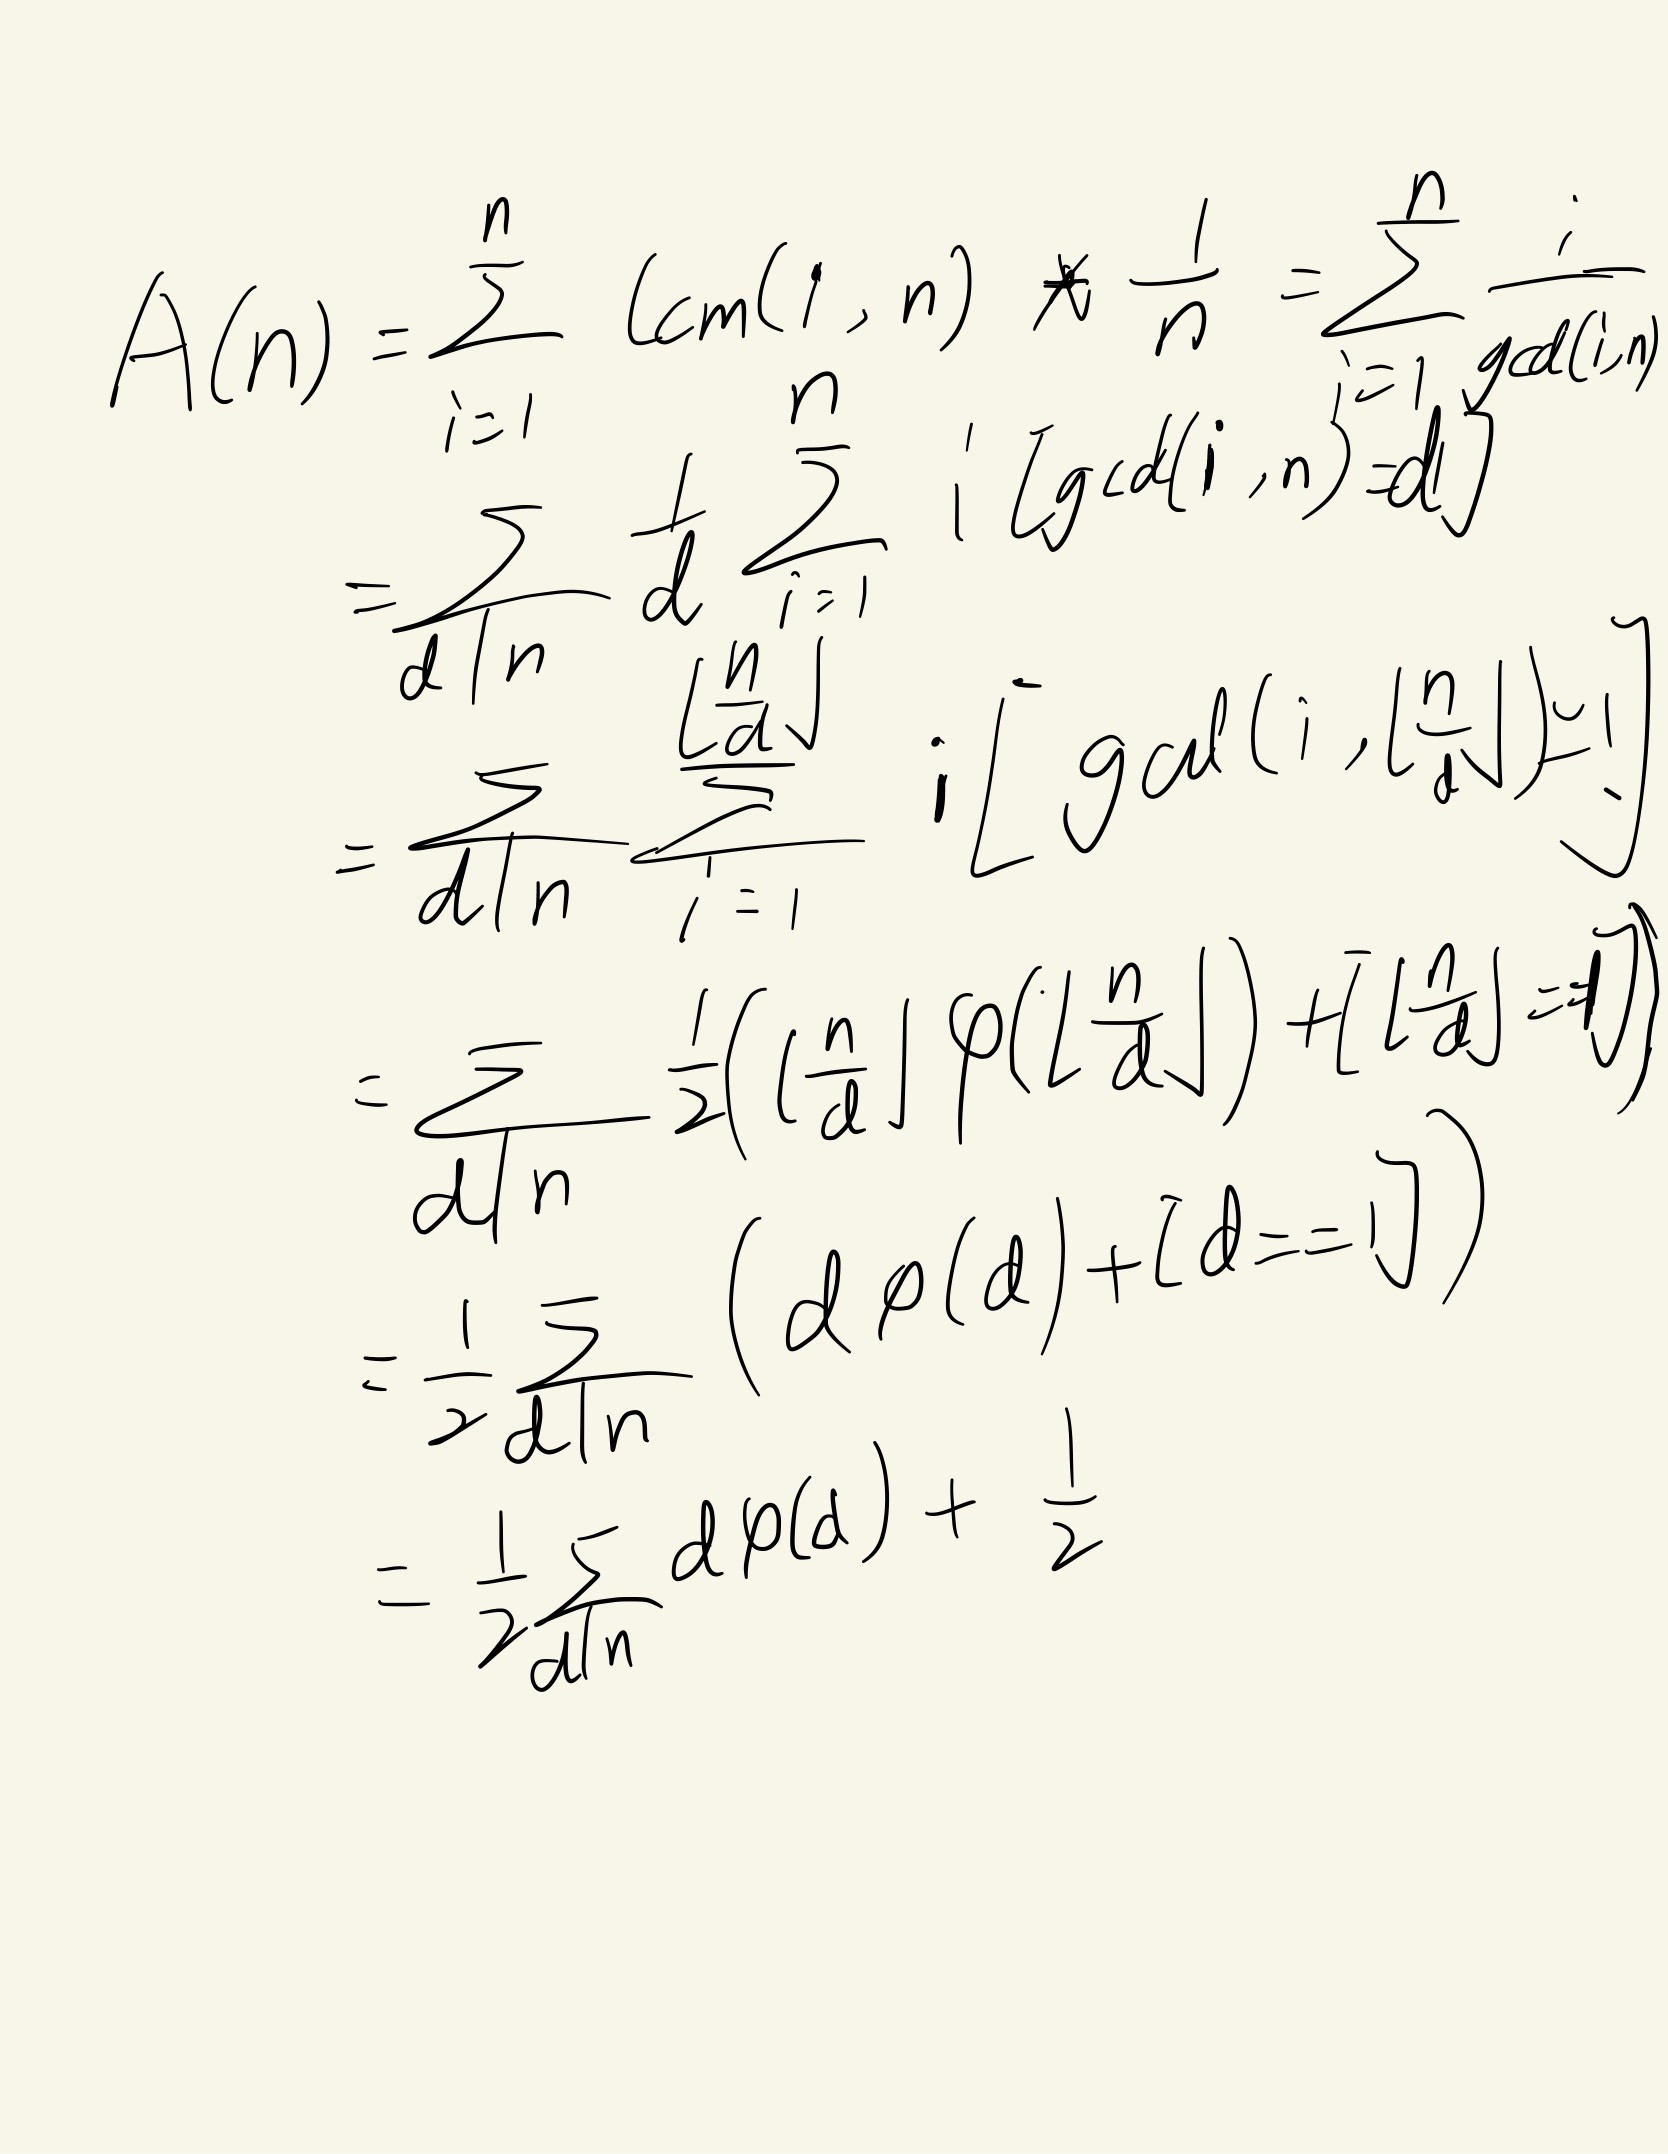 A(n) = \sum_{i=1}^{n} lcm(i, n) * \frac{1}{n} = \sum_{i=1}^{n} \frac{i}{gcd(i,n)}
= \sum_{d|n} \frac{1}{d} \sum_{i=1}^{n} i [gcd(i, n) = d]
= \sum_{d|n} \sum_{i=1}^{⌊\frac{n}{d}⌋} i [gcd(i, ⌊\frac{n}{d}⌋) = 1]
= \sum_{d|n} \frac{1}{2} (⌊\frac{n}{d}⌋ φ(⌊\frac{n}{d}⌋) + [⌊\frac{n}{d}⌋ == 1])
= \frac{1}{2} \sum_{d|n} (d φ(d) + [d == 1])
= \frac{1}{2} \sum_{d|n} d φ(d) + \frac{1}{2}